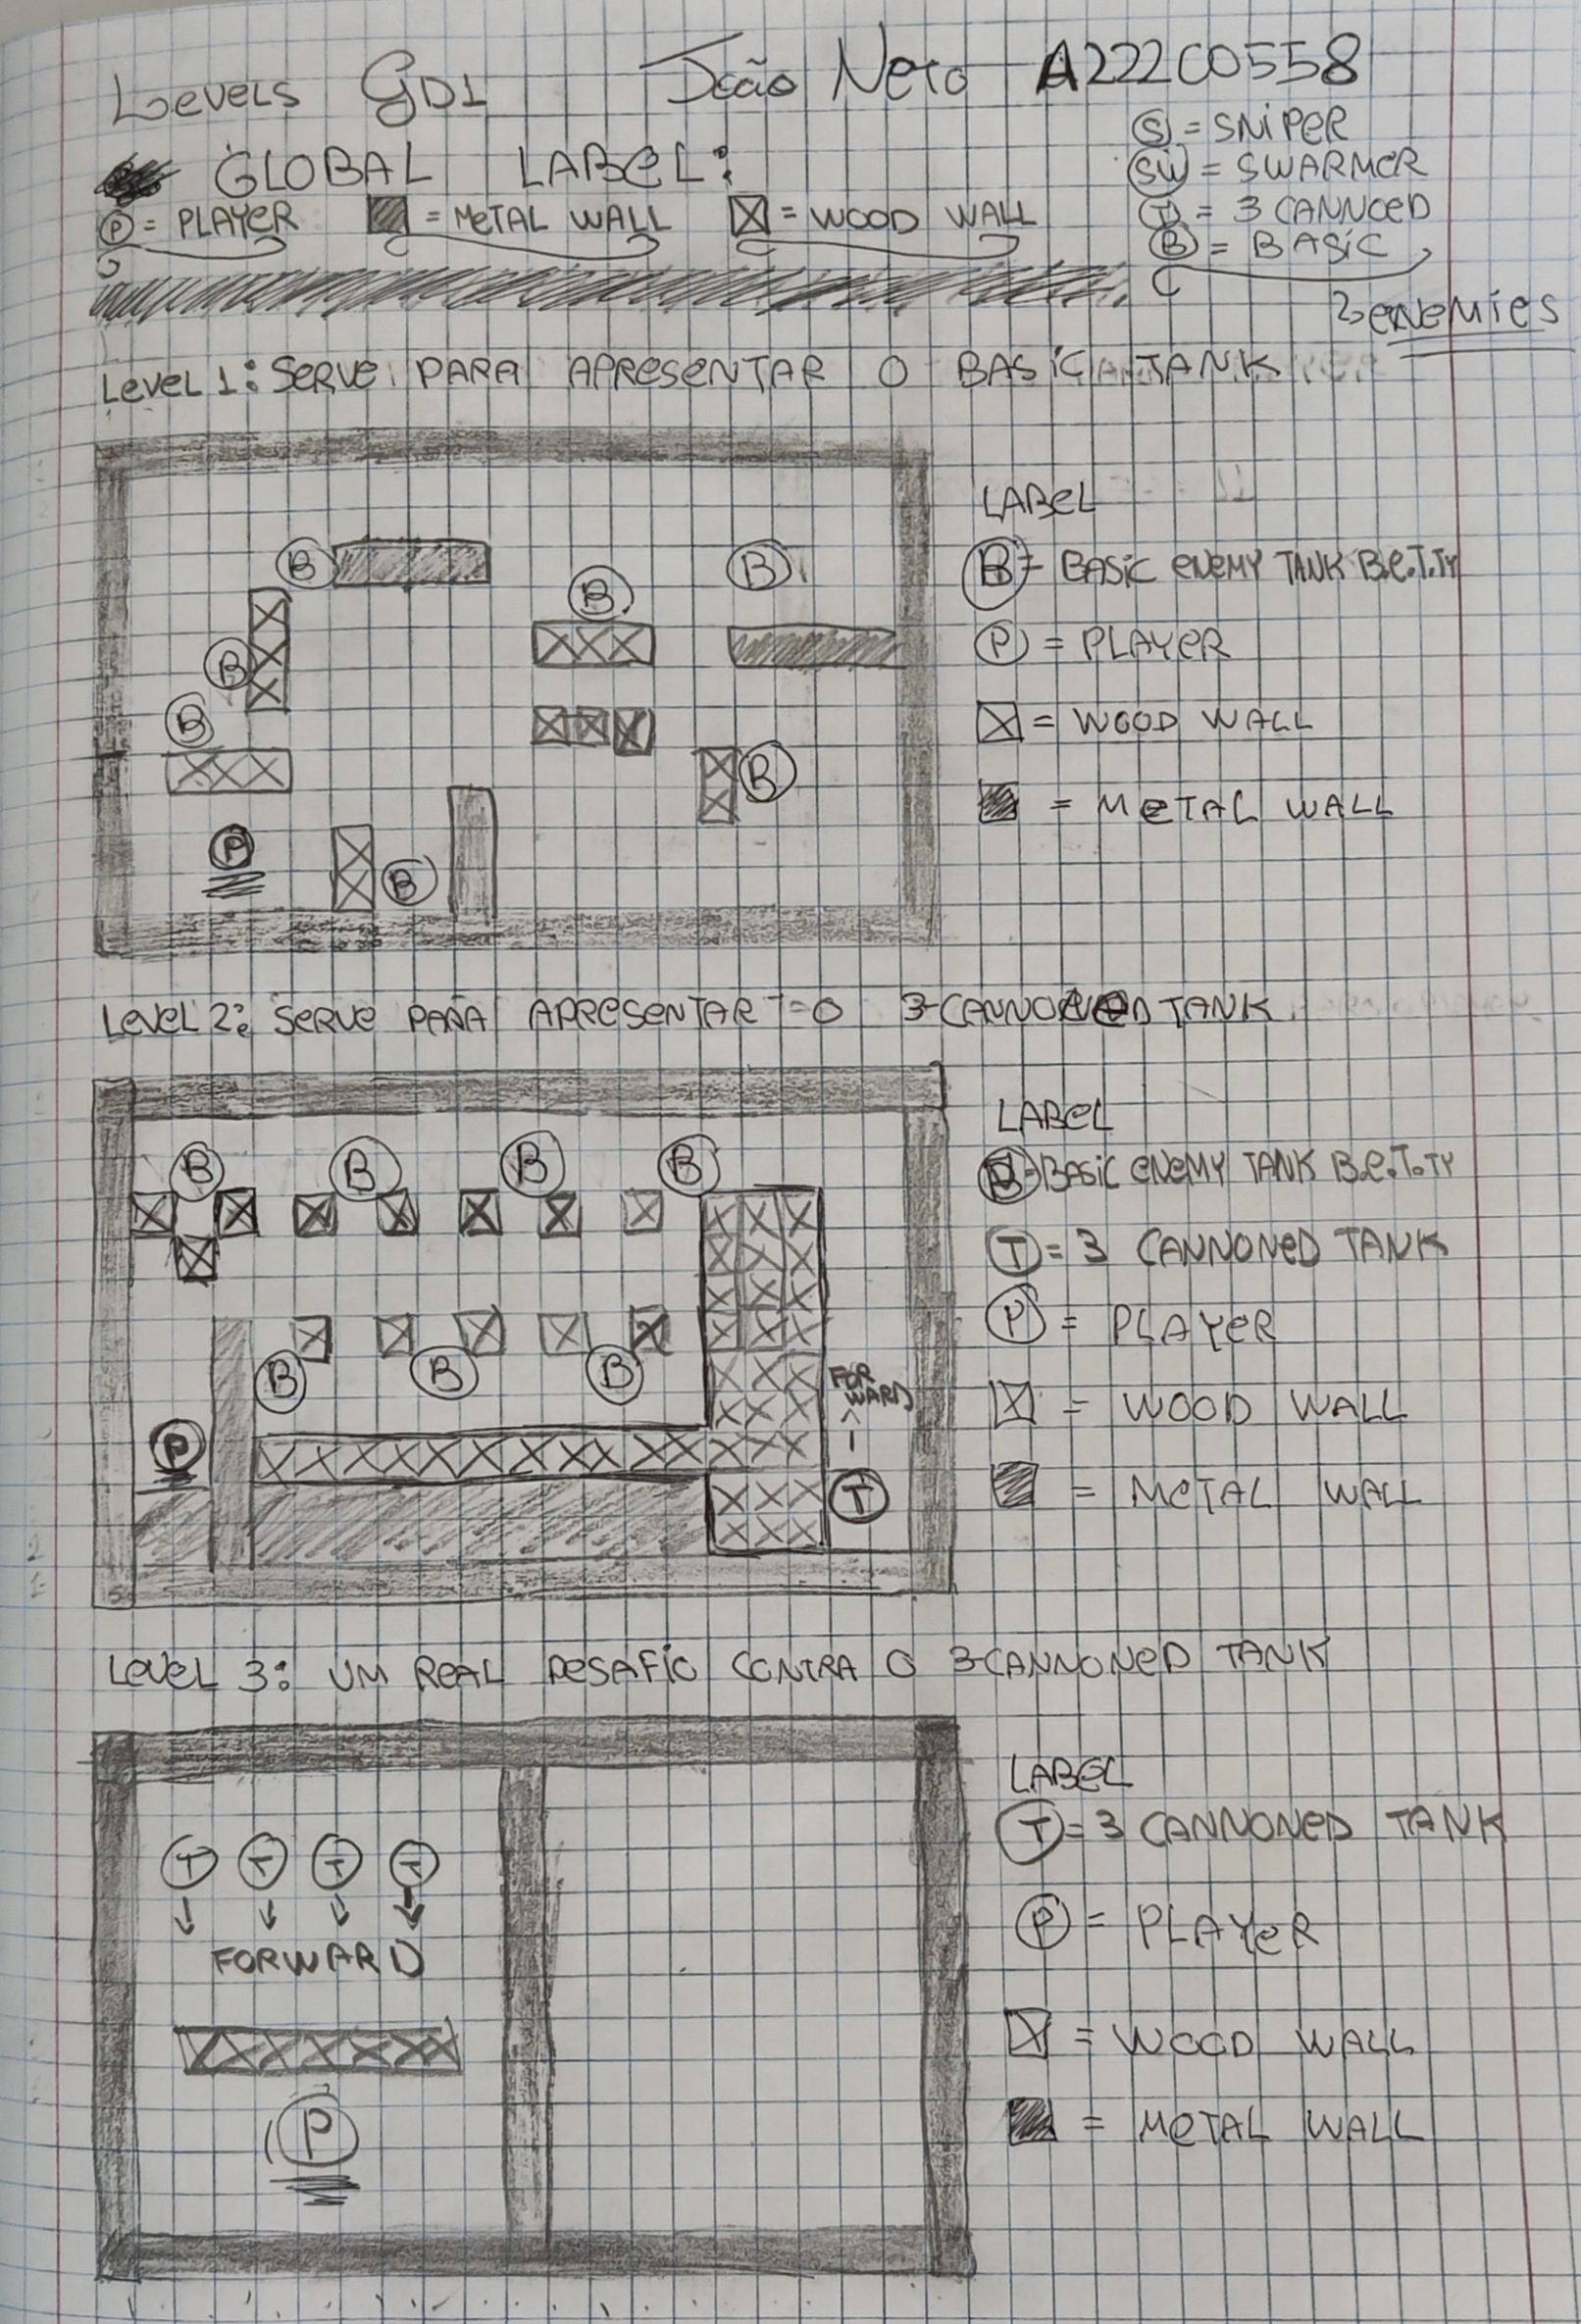 Levels GD1 João Neto A22200558
GLOBAL LABEL:
P = PLAYER = METAL WALL = WOOD WALL
S = SNIPER
SW = SWARMER
T = 3 CANNOED
B = BASIC
enemies
Level 1: Serve PARA APRESENTAR O BASIC TANK
B
B
B
B
B
B
P
B
LABEL
B = BASIC ENEMY TANK B.E.T.TY
P = PLAYER
= WOOD WALL
= METAL WALL
Level 2: Serve PARA APRESENTAR O 3-CANNONED TANK
B B B B
B B B
FOR
WARD
P
T
LABEL
B = BASIC ENEMY TANK B.E.T.TY
T = 3 CANNONED TANK
P = PLAYER
= WOOD WALL
= METAL WALL
LEVEL 3: UM REAL DESAFIO CONTRA O 3-CANNONED TANK
T T T T
FORWARD
P
LABEL
T = 3 CANNONED TANK
P = PLAYER
= WOOD WALL
= METAL WALL